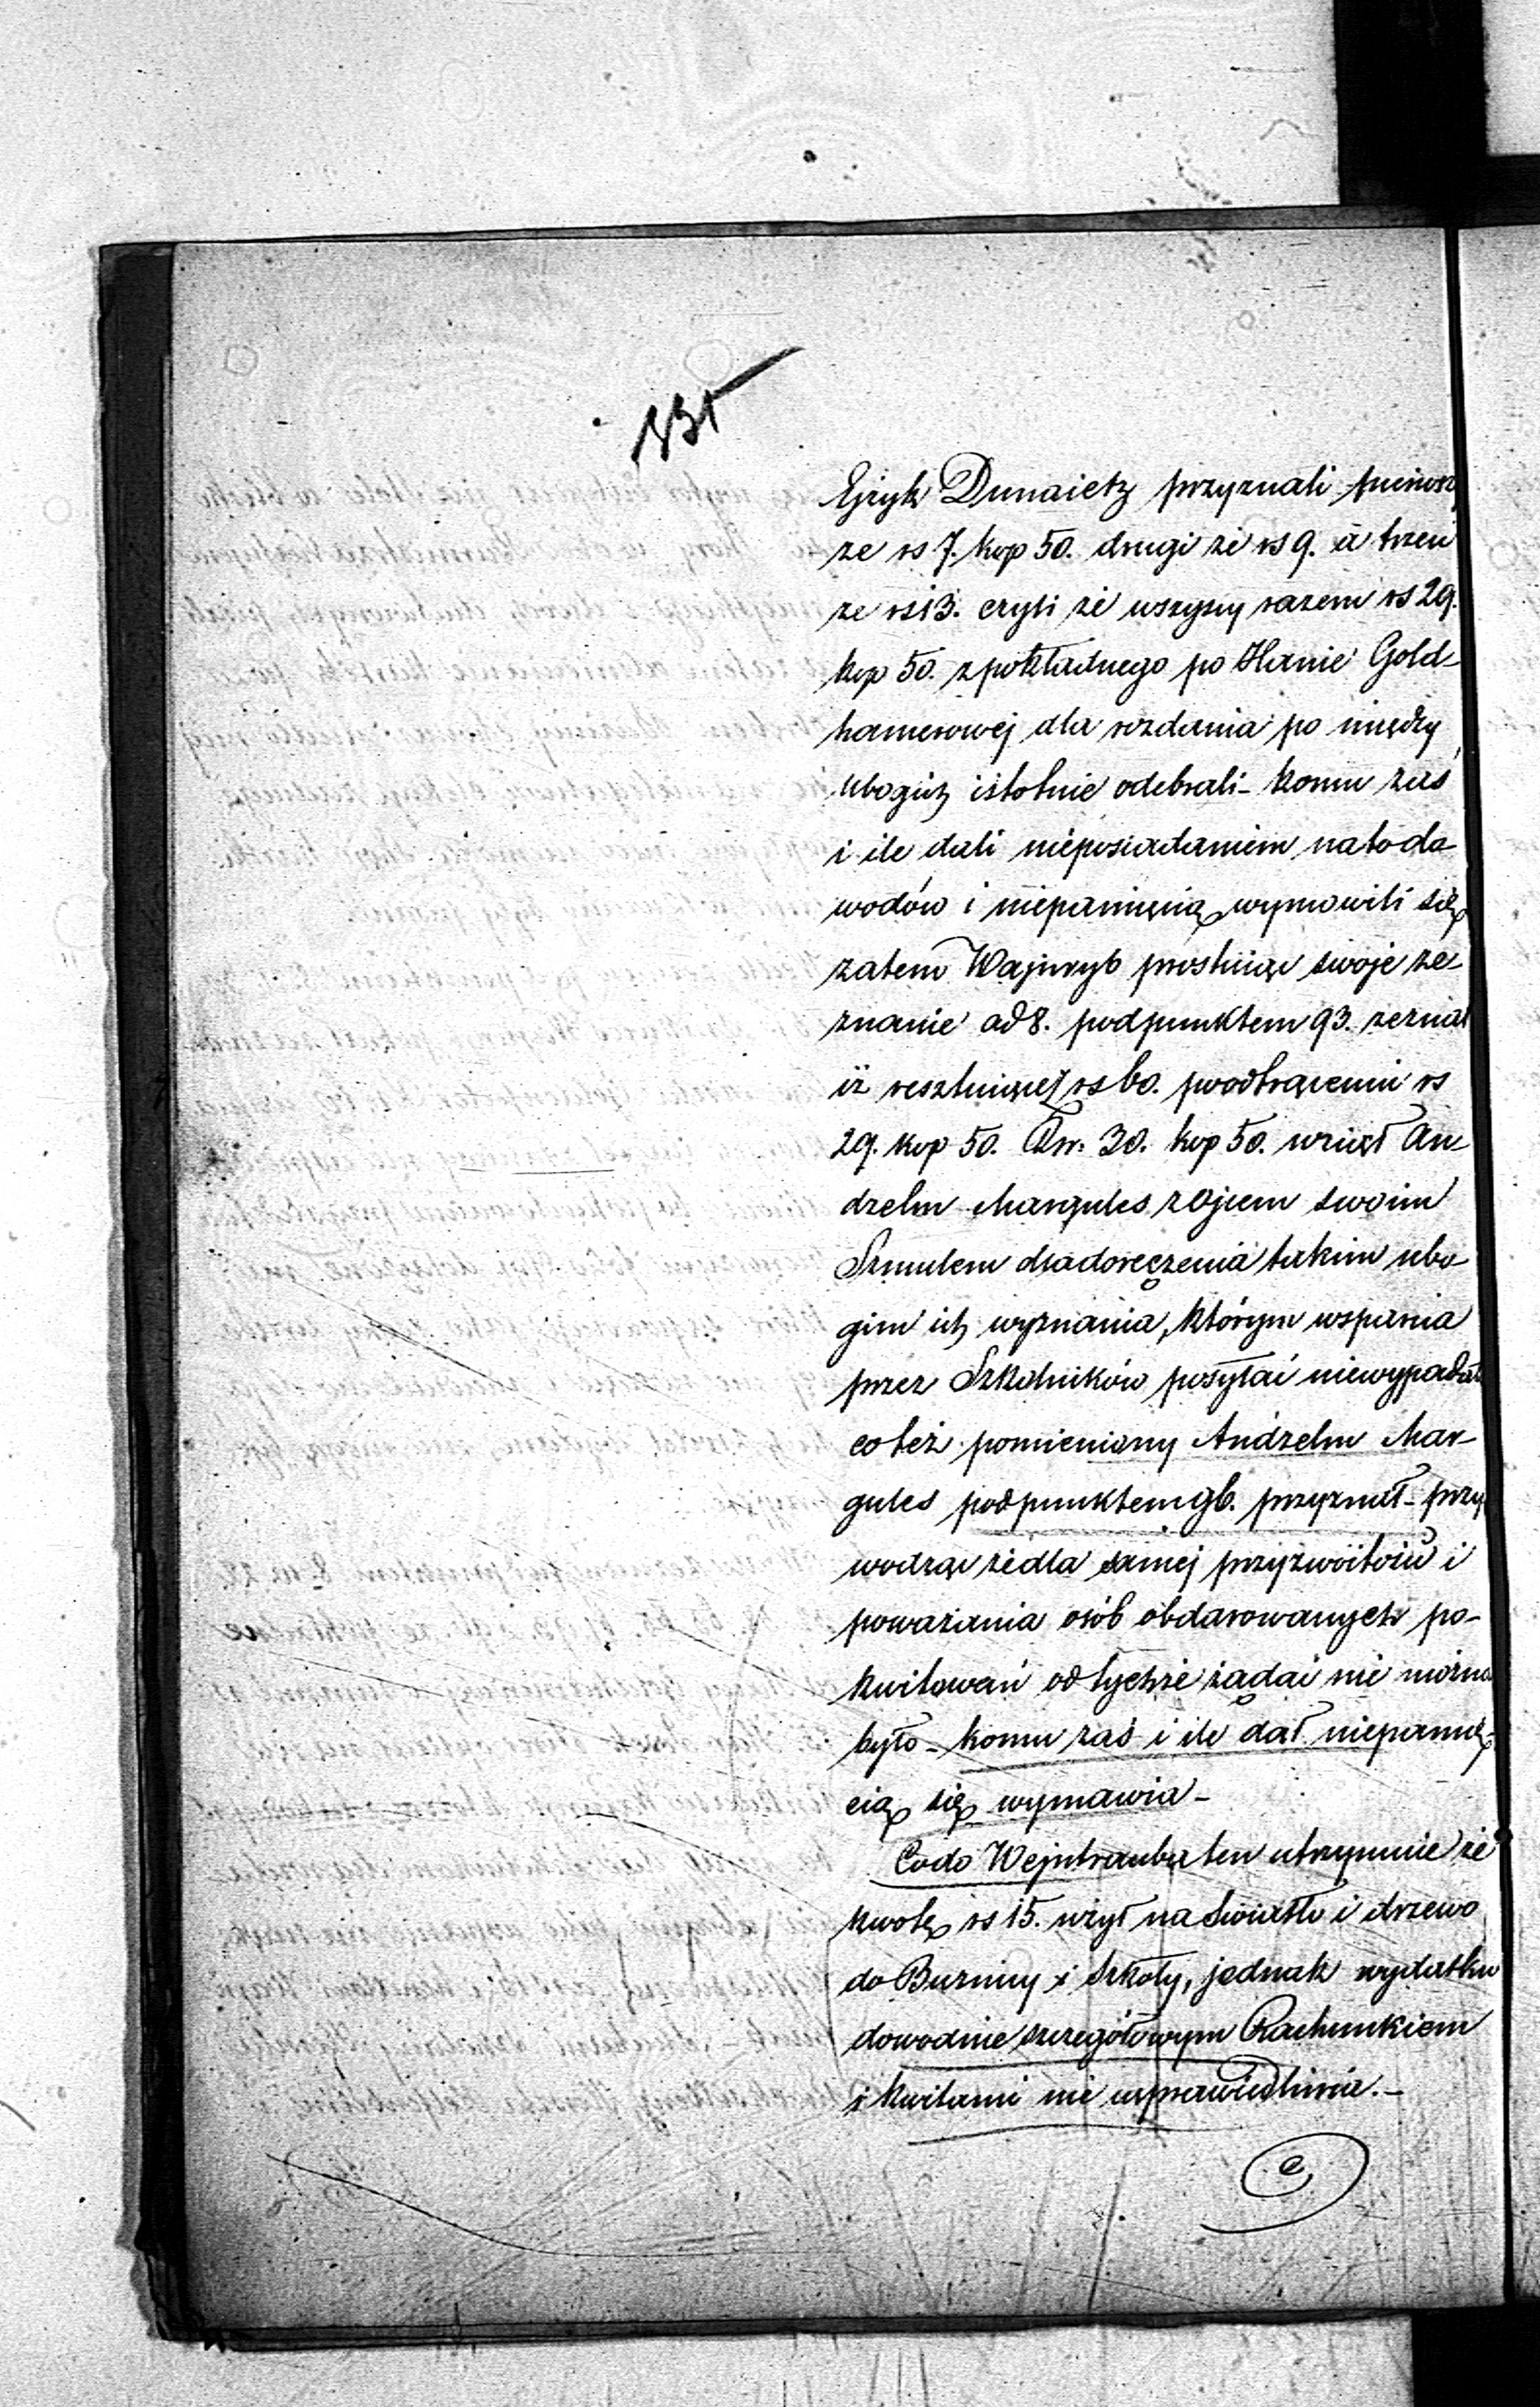 331
Ejzyk Dunaietz przyznali pierwszy
że rs 7. kop 50. drugi że rs 9. a trzeci
że rs 13. czyli że wszyscy razem rs 29.
kop 50. z pokładnego po Hanie Gold-
hamerowej dla rozdania po między
ubogich istotnie odebrali - komu zaś
i ile dali nieposiadaniem na to do-
wodów i niepamięcią wymowili się
zatem Wajnryb prostując swoje ze-
znanie ad 8. pod punktem 93. zeznał
iż resztujące rs 60. po odtrąceniu rs
29. kop 50. rs. 30. kop 50. wziął An-
dzelm Margules z Ojcem swoim
Szmulem dla doręczenia takim ubo-
gim ich wyznania, którym wsparcia
przez Szkolników posyłać niewypadało
co też pomieniony Andzelm Mar-
gules pod punktem 96. przyznał - przy
wodząc że dla samej przyzwoitości i
poważania osób obdarowanych po-
kwitowań od tychże żądać nie można
było - komu zaś i ile dał niepamię-
cią się wymawia -
Co do Wejntrauba ten utrzymuie że
kwotę rs 15. użył na Swiatło i drzewo
do Buznicy i Szkoły, jednak wydatku
dowodnie szczegółowym Rachunkiem
i kwitami nie usprawiedliwia. -